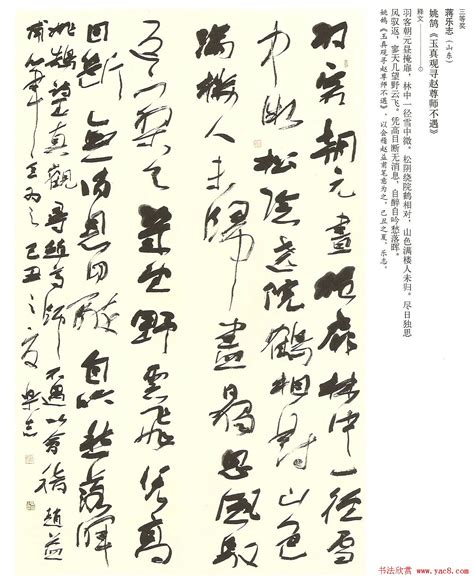 三等奖
蒋乐志（山东）
姚鹄《玉真观寻赵尊师不遇》
释文
羽客朝元昼掩扉，林中一径雪中微。松阴绕院鹤相对，山色满楼人未归。尽日独思
风驭返，寥天几望野云飞。凭高目断无消息，自醉自吟愁落晖。
姚鹄《玉真观寻赵尊师不遇》，以会稽赵益甫笔意为之。己丑之夏，乐志。
羽客朝元晝掩扉林中一徑雪
中微松陰繞院鶴相對山色
滿樓人未歸盡日獨思風馭
返寥天幾望野雲飛憑高
目斷無消息自醉自吟愁落暉
姚鵠玉真觀尋趙尊師不遇以會稽趙益
甫筆意為之己丑之夏樂志
书法欣赏 www.yac8.com